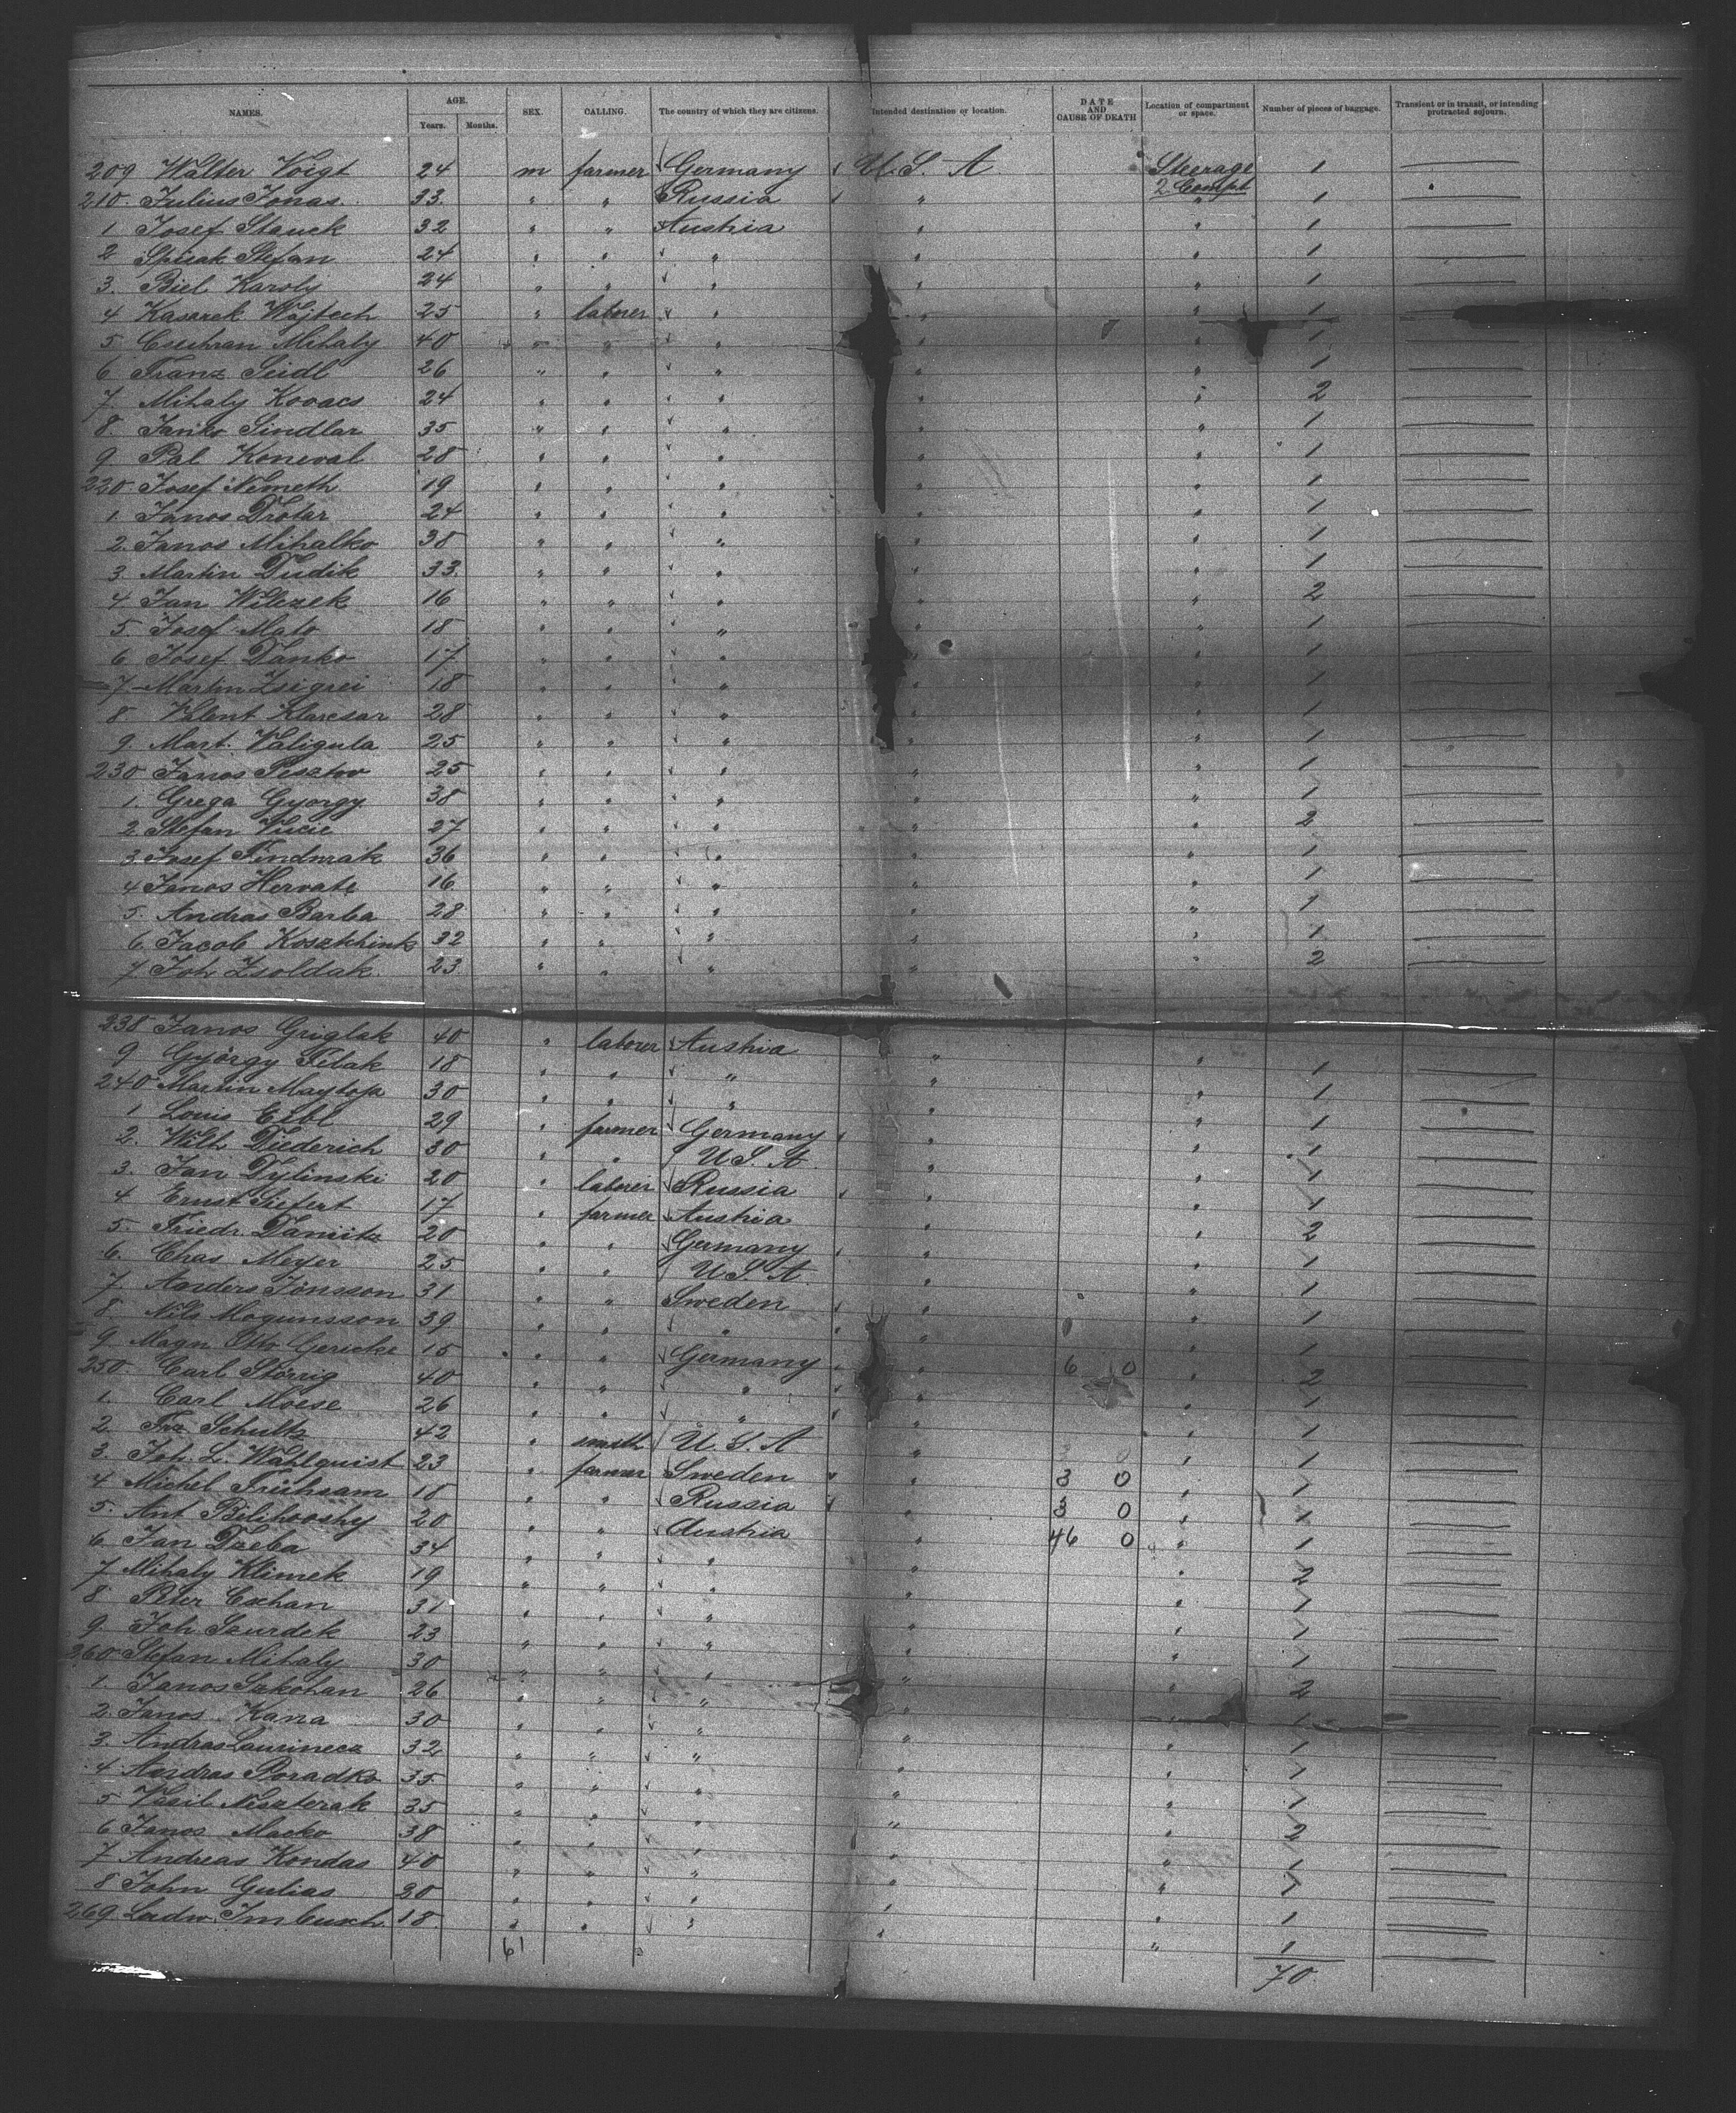 NAMES. AGE. Years. Months. SEX. CALLING. The country of which they are citizens. Intended destination or location. DATE AND CAUSE OF DEATH Location of compartment or space. Number of pieces of baggage. Transient or in transit, or intending protracted sojourn.
209 Walter Voigt 24 m farmer Germany U.S.A Steerage 2 Compt 1
210. Julius Jonas 33 " " Russia " " 1
1 Josef Stauck 32 " " Austria " " 1
2 Spisak Stefan 24 " " " " " 1
3. Biel Karoly 24 " " " " " 1
4 Kasarek Wojtech 25 " laborer " " " 1
5 Csechran Mihaly 40 " " " " " 1
6 Franz Seidl 26 " " " " " 1
7 Mihaly Kovacs 24 " " " " " 2
8. Janko Sindlar 35 " " " " " 1
9 Pal Koneval 28 " " " " " 1
220 Josef Nemeth 19 " " " " " 1
1. Janos Drotar 24 " " " " " 1
2. Janos Mihalko 38 " " " " " 1
3 Martin Dudik 33 " " " " " 1
4 Jan Wilczek 16 " " " " " 2
5. Josef Mato 18 " " " " " 1
6 Josef Danko 17 " " " " " 1
7 Martin Zsigrei 18 " " " " " 1
8. Valent Klaresar 28 " " " " " 1
9. Mart. Valigula 25 " " " " " 1
230 Janos Pesztor 25 " " " " " 1
1. Grega Gyorgy 38 " " " " " 1
2 Stefan Vucic 27 " " " " " 2
3 Josef Findurak 36 " " " " " 1
4 Janos Hervate 16 " " " " " 1
5. Andras Barba 28 " " " " " 1
6. Jacob 32 " " " " " 1
7 Joh Zsoldak 23 " " " " " 2
238 Janos Griglak 40 " laborer Austria " " 1
9 György Filak 18 " " " " " 1
240 Martin 30 " " " " " 1
1 Louis Eibl 29 " farmer Germany " " 1
2. Wilh Diederich 30 " " U.S.A. " " 1
3. Jan Dylinski 20 " laborer Russia " " 1
4 Ernst Siefert 17 " farmer Austria " " 2
5. Friedr. Damitz 20 " " Germany " " 1
6. Chas Meyer 25 " " U.S.A. " " 1
7 Anders Jonsson 31 " " Sweden " " 1
8. Nils Mogunsson 39 " " " " " 1
9. Magn Otto Gericke 15 " " Germany " 6 0 " 2
250. Carl Störrig 40 " " " " " 1
1. Carl Moese 26 " " " " " 1
2. Frz Schultz 42 " smith U.S.A " " 1
3. Joh. L. Wahlquist 23 " farmer Sweden " 3 0 " 1
4 Michel Frühsam 18 " " Russia " 3 0 " 1
5. Ant 20 " " Austria " 46 0 " 1
6. Jan Dzeba 34 " " " " " 2
7 Mihaly Klimek 19 " " " " " 1
8 Peter Cxhan 31 " " " " " 1
9. Joh. Szurdek 23 " " " " " 1
260 Stefan Mihaly 30 " " " " " 2
1. Janos Szkohan 26 " " " " " 1
2. Janos Kana 30 " " " " " 1
3. Andras Laurinecz 32 " " " " " 1
4 Andras Poradko 35 " " " " " 1
5 Vasil Neszterak 35 " " " " " 2
6 Janos Macko 38 " " " " " 1
7 Andreas Kondas 40 " " " " " 1
8 John Gulias 30 " " " " " 1
269. Ludw. Imbusch 18. " " " " " 1
61 70